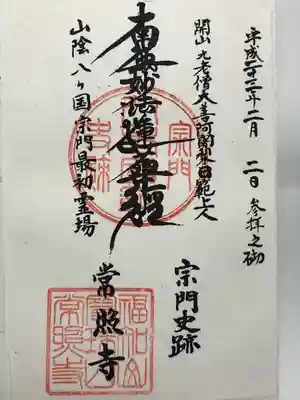 平成二十三年二月二日参拝之砌
開山九老僧大善阿闍梨日範上人
宗門史跡
南無妙法蓮華経
常照寺
山陰八ヶ国宗門最初霊場
宗門
史跡
福知山
常照寺